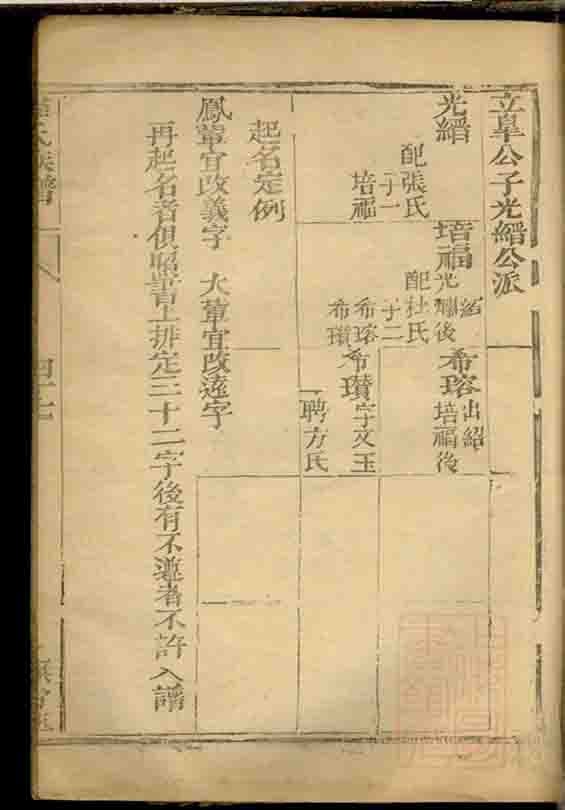 立阜公子光縉公派
光縉
配張氏
子一
培福
培福
光縉後
配杜氏
子二
希瑢
希瓚
希瑢
出紹
培福後
希瓚
字文玉
聘方氏
起名定例
鳳輩宜改義字 大輩宜改遠字
再起名者俱照譜上排定三十二字後有不遵者不許入譜
氏族譜